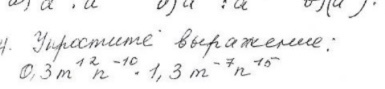 4. Упростите выражение:
0,3m¹²n⁻¹⁰ · 1,3m⁻⁷n¹⁵